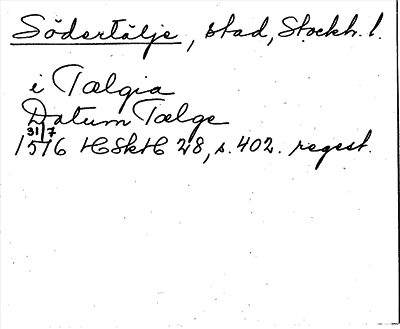 Södertälje, stad, Stockh. l.
i Tælgia
Datum Tælge
31/7
1516 HSkH 28, s. 402. regest.